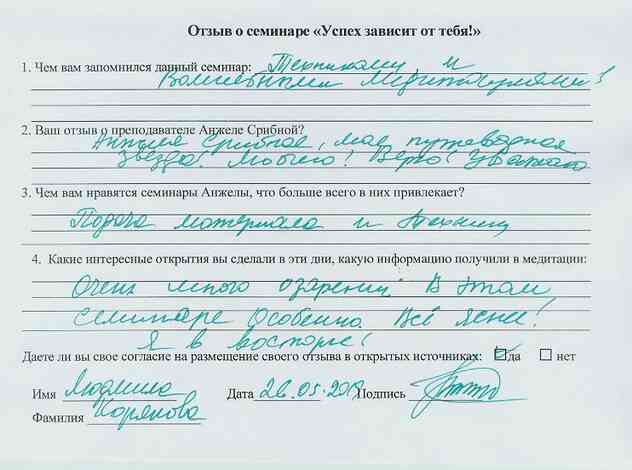 Отзыв о семинаре «Успех зависит от тебя!»
1. Чем вам запомнился данный семинар: Техниками, и
Волшебными Медитациями!
2. Ваш отзыв о преподавателе Анжеле Срибной?
Анжела Срибная, моя путеводная
звезда! Люблю! Верю! Уважаю
3. Чем вам нравятся семинары Анжелы, что больше всего в них привлекает?
Подача материала и техники
4. Какие интересные открытия вы сделали в эти дни, какую информацию получили в медитации:
Очень много озарений. В этом
семинаре Особенно. Всё ясно!
Я в восторге!
Даете ли вы свое согласие на размещение своего отзыва в открытых источниках: да нет
Имя Людмила Дата 26.05.2019 Подпись
Фамилия Корякова